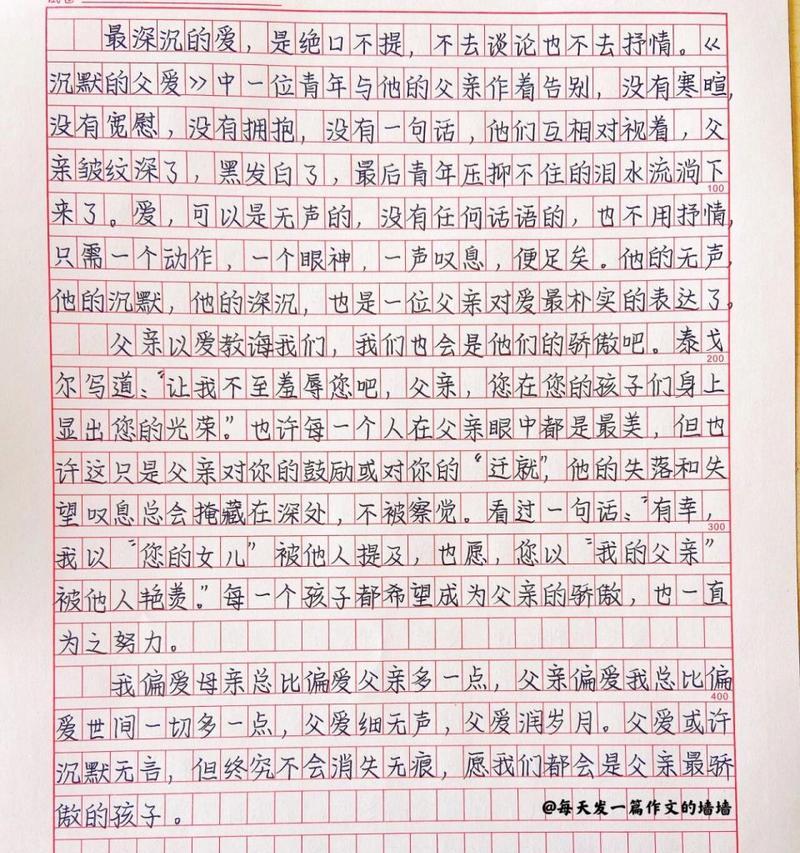 最深沉的爱，是绝口不提，不去谈论也不去抒情。《
沉默的父爱》中一位青年与他的父亲作着告别，没有寒暄，
没有宽慰，没有拥抱，没有一句话，他们互相对视着，父
亲皱纹深了，黑发白了，最后青年压抑不住的泪水流淌下
100
来了。爱，可以是无声的，没有任何话语的，也不用抒情，
只需一个动作，一个眼神，一声叹息，便足矣。他的无声，
他的沉默，他的深沉，也是一位父亲对爱最朴实的表达了。
父亲以爱教诲我们，我们也会是他们的骄傲吧。泰戈
200
尔写道：“让我不至羞辱您吧，父亲，您在您的孩子们身上
显出您的光荣。”也许每一个人在父亲眼中都是最美，但也
许这只是父亲对你的鼓励或对你的“迁就”，他的失落和失
望叹息总会掩藏在深处，不被察觉。看过一句话：“有幸，
300
我以“您的女儿”被他人提及，也愿，您以“我的父亲”
被他人艳羡。”每一个孩子都希望成为父亲的骄傲，也一直
为之努力。
我偏爱母亲总比偏爱父亲多一点，父亲偏爱我总比偏
400
爱世间一切多一点，父爱细无声，父爱润岁月。父爱或许
沉默无言，但终究不会消失无痕，愿我们都会是父亲最骄
傲的孩子。
@每天发一篇作文的墙墙